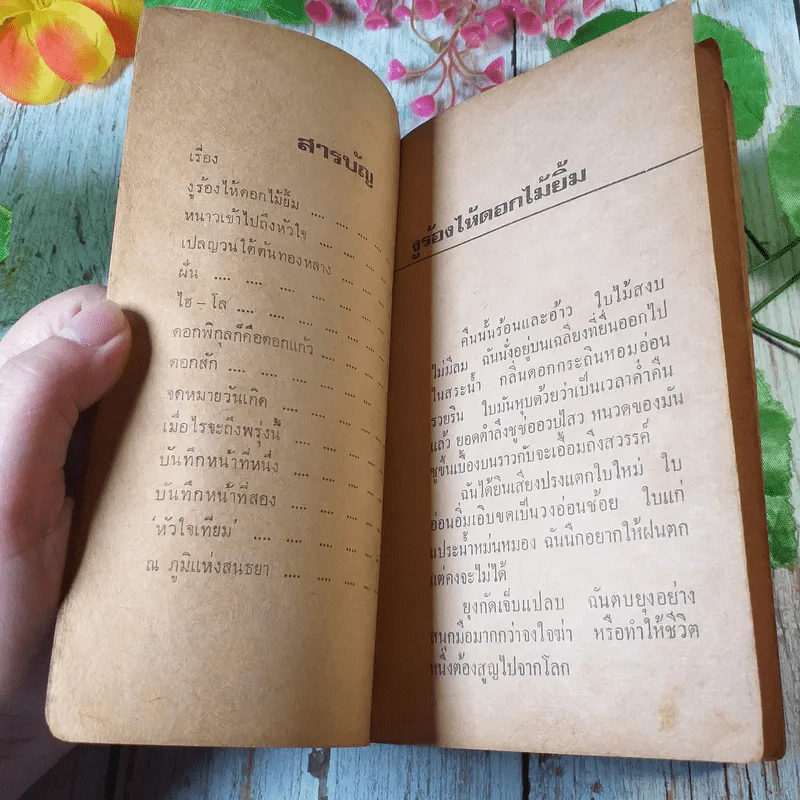 สารบัญ
เรื่อง
งูร้องไห้ดอกไม้ยิ้ม .... .... ....
หนาวเข้าไปถึงหัวใจ .... .... ....
เปลญวนใต้ต้นทองหลาง .... ....
ฝั่น .... .... .... .... ....
ไฮ – โล .... .... .... ....
ดอกพิกุลก็คือดอกแก้ว .... ....
ดอกสัก .... .... .... ....
จดหมายวันเกิด .... .... .... ....
เมื่อไรจะถึงพรุ่งนี้ .... .... ....
บันทึกหน้าที่หนึ่ง .... .... ....
บันทึกหน้าที่สอง .... .... .... ....
'หัวใจเทียม' .... .... .... ....
ณ ภูมิแห่งสนธยา .... .... .... ....
งูร้องไห้ดอกไม้ยิ้ม
คืนนั้นร้อนและอ้าว ใบไม้สงบ
ไม่มีลม ฉันนั่งอยู่บนเฉลียงที่ยื่นออกไป
ในสระน้ำ กลิ่นดอกกระถินหอมอ่อน
รวยริน ใบมันหุบด้วยว่าเป็นเวลาค่ำคืน
แล้ว ยอดตำลึงชูช่ออวบไสว หนวดของมัน
ชูขึ้นเบื้องบนราวกับจะเอื้อมถึงสวรรค์
ฉันได้ยินเสียงปรงแตกใบใหม่ ใบ
อ่อนอิ่มเอิบขดเป็นวงอ่อนช้อย ใบแก่
มประน้ำหม่นหมอง ฉันนึกอยากให้ฝนตก
แต่คงจะไม่ได้
ยุงกัดเจ็บแปลบ ฉันตบยุงอย่าง
สนุกมือมากกว่าจงใจฆ่า หรือทำให้ชีวิต
หนึ่งต้องสูญไปจากโลก